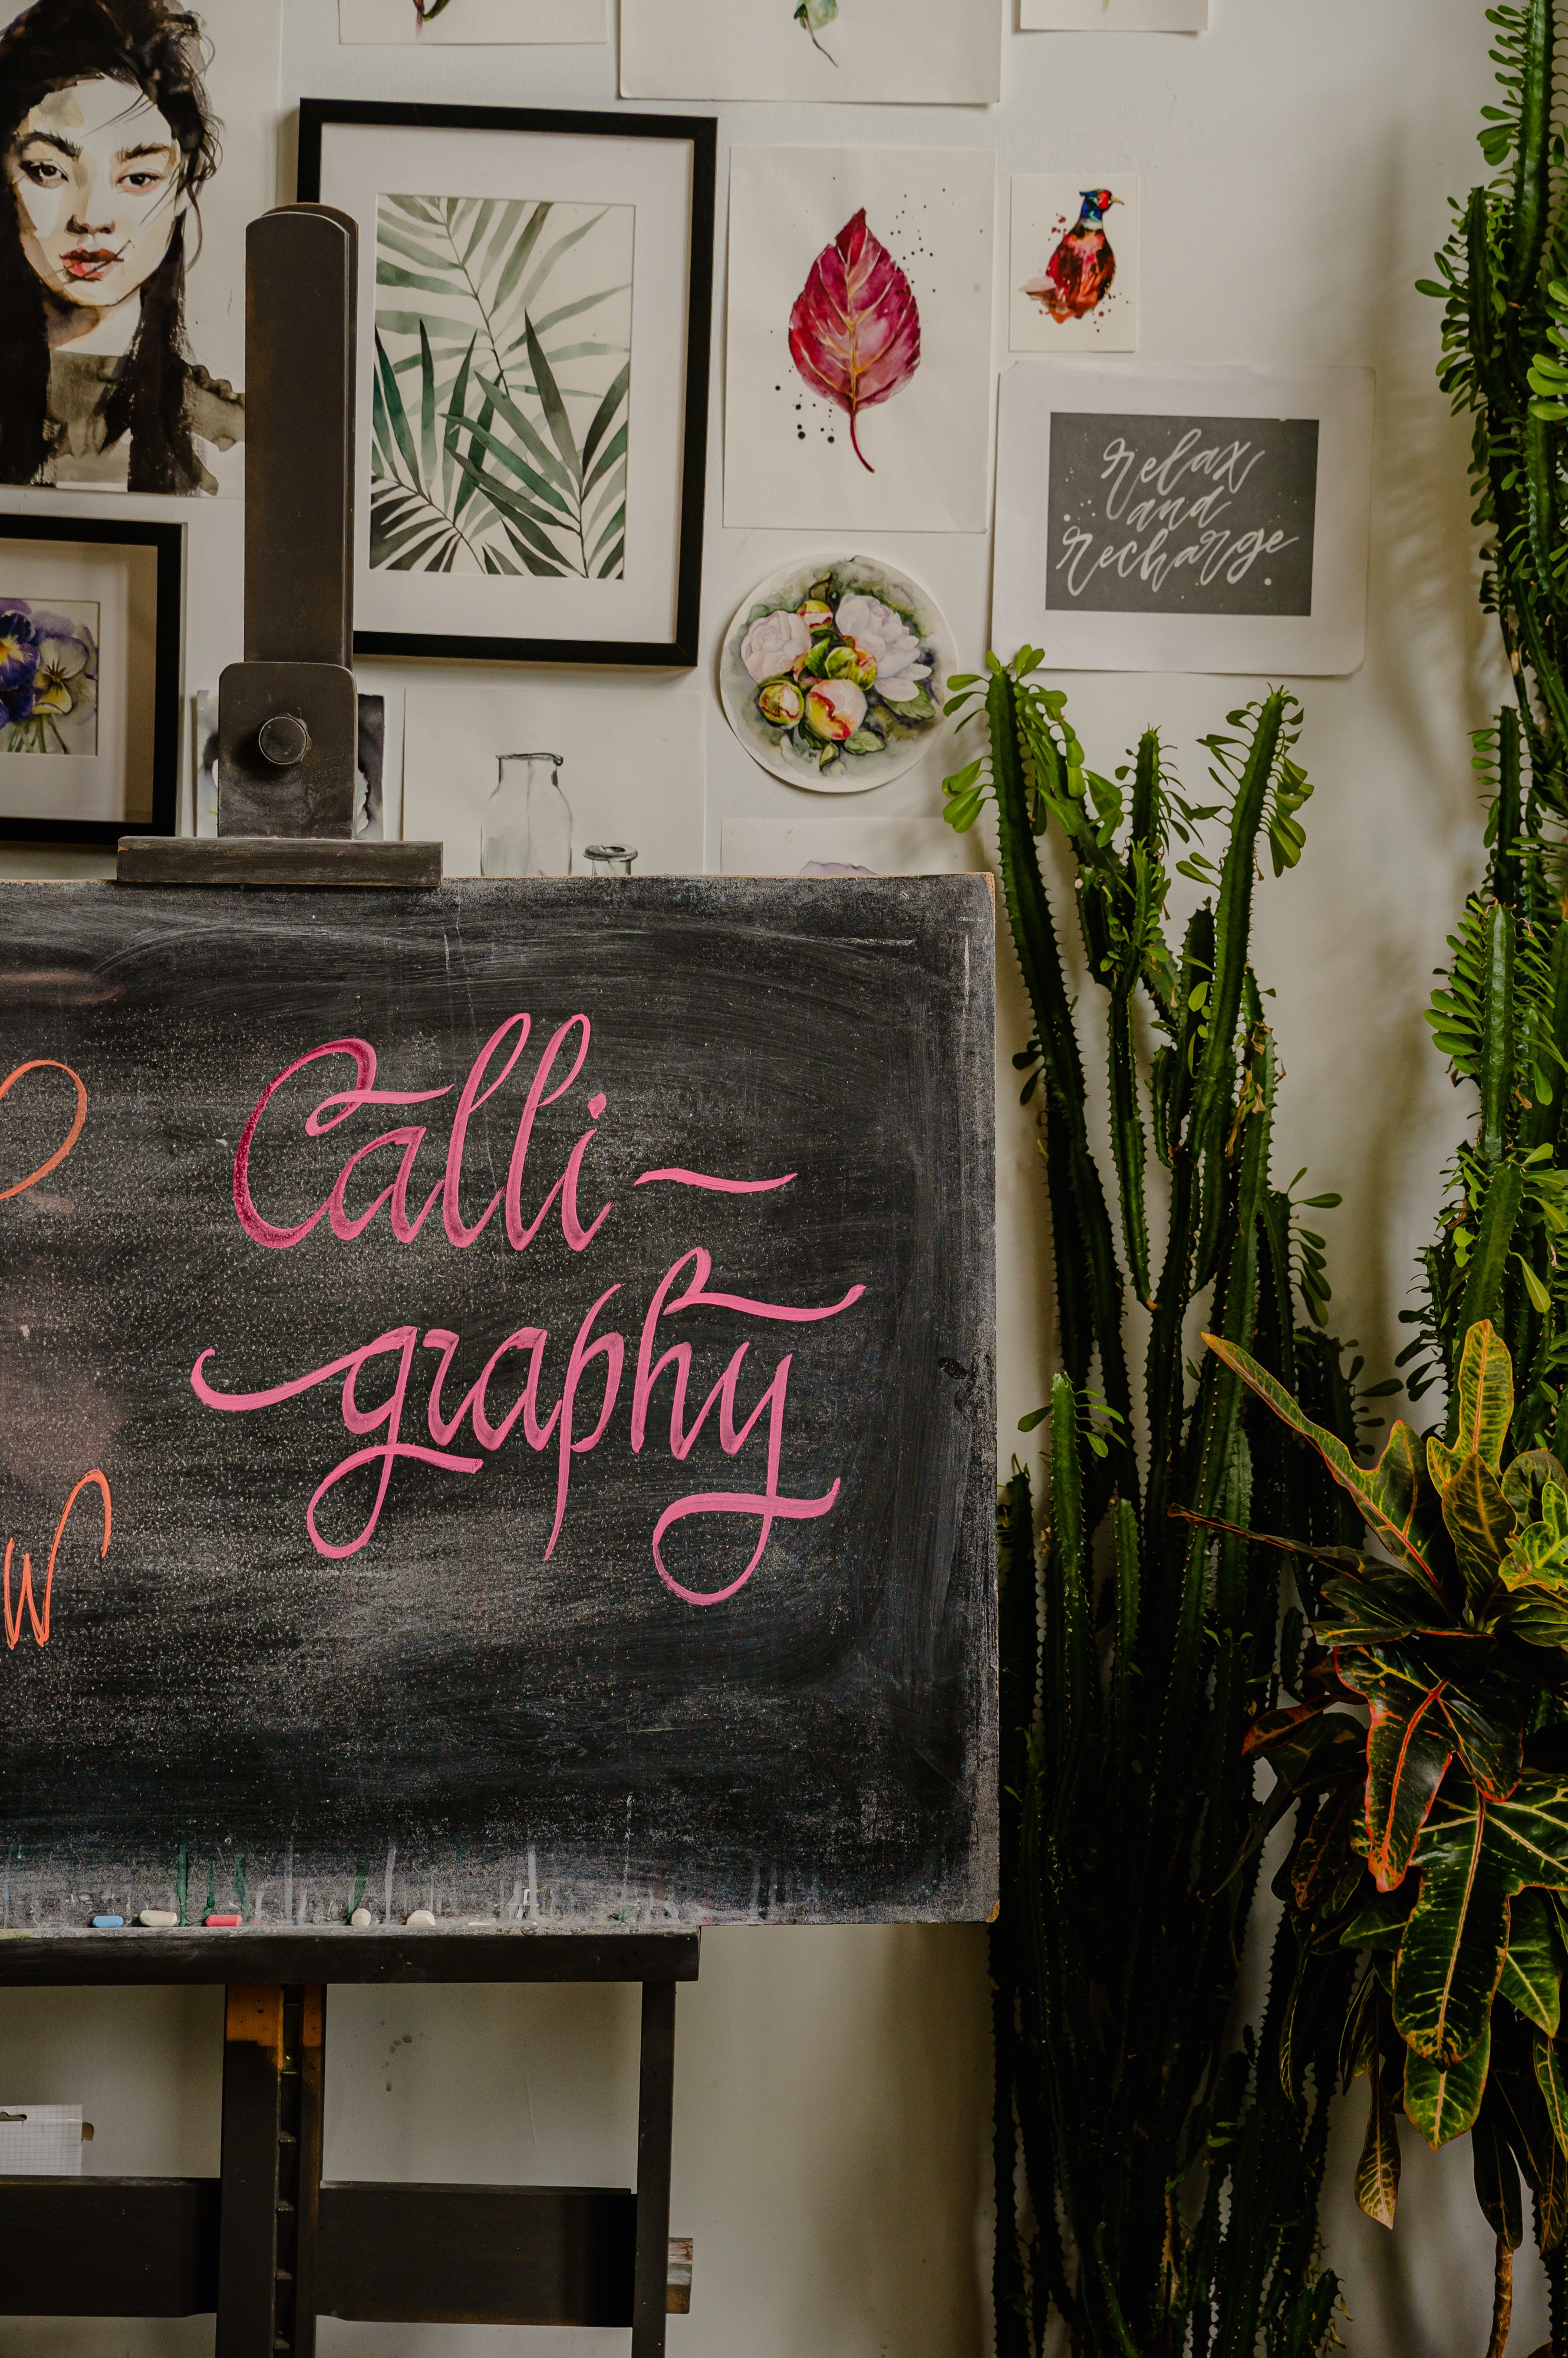 relax
and
recharge
Calli-
graphy